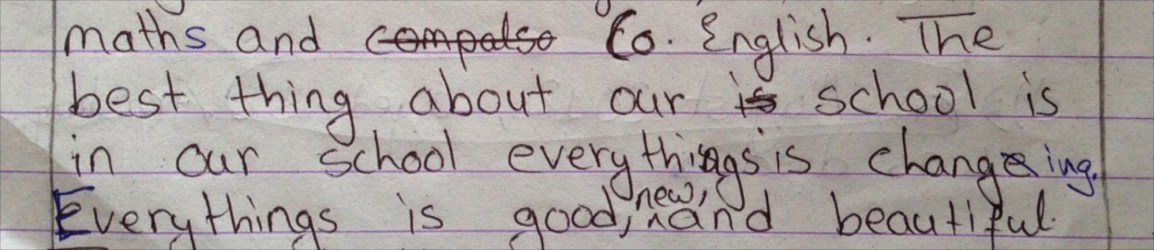 maths and compalso Co. English. The
best thing about our is school is
in our school everythings is changing.
Everythings is good, new, and beautiful.